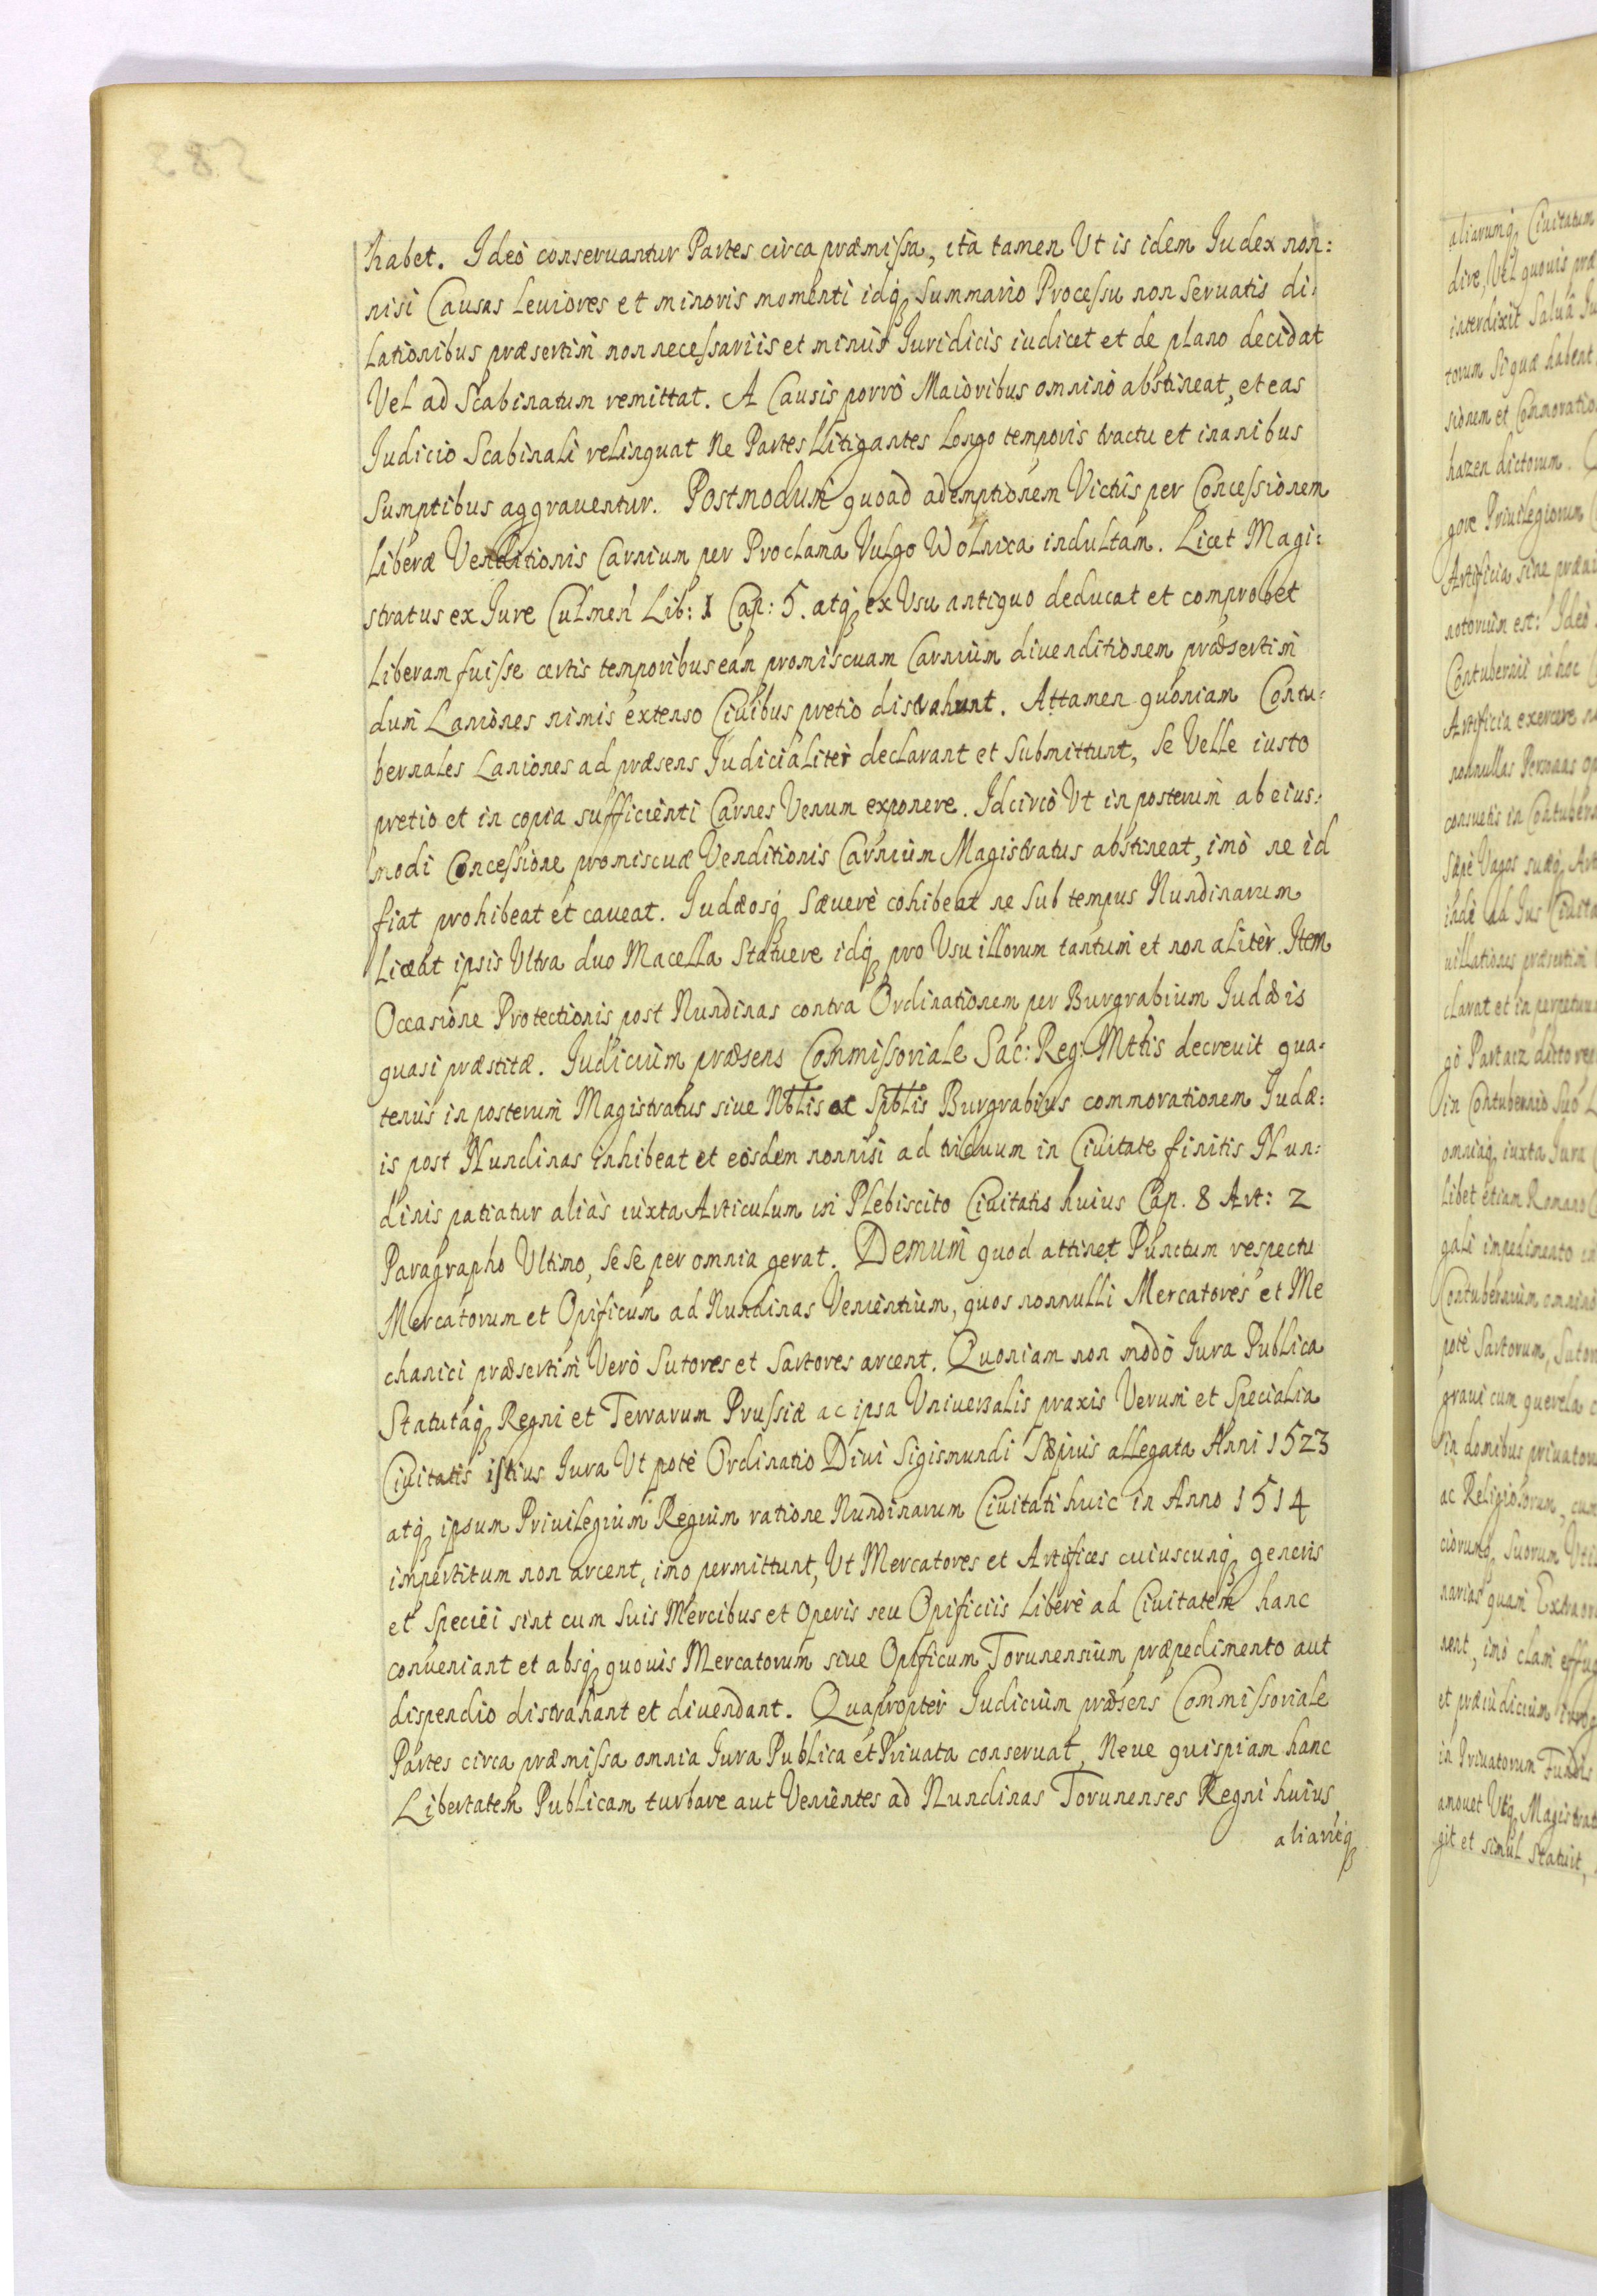 habet. Ideò conseruantur Partes circa præmissa, ità tamen Ut is idem Iudex non:
nisi Causas leuiores et minoris momenti idq́ꝫ Summario Processu non Seruatis di:
lationibus præsertim̀ non necessariis et minus̀ Iuridicis iudicet et de plano decidat
Vel ad Scabinatum remittat. A Causis porrò Maioribus omninò abstineat, et eas
Iudicio Scabinali relinquat Ne Partes Llitigantes longo temporis tractu et inanibus
Sumptibus aggrauentur. Postmodum̀ quoad ademptionem Victûs per Concessionem
Liberæ Venditionis Carnium per Proclama Vulgo Wolnica indultam. Licet Magi:
stratus ex Iure Culmen̄ Lib: 1 Cap: 5. atq́ꝫ ex Usu antiquo deducat et comprobet
Liberam fuisse certis temporibus eàn promiscuam Carnium divenditionem præsertim̀
dum̀ Laniones nimis extenso Ciuibus pretio distrahunt. Attamen quoniam Contu:
bernales Laniones ad præsens Iudicialitèr declarant et Submittunt, Se Velle iusto
pretio et in copia sufficienti Carnes Venum exponere. Idcircò Ut in posterum̀ ab eius:
modi Concessione promiscuæ Venditionis Carnium Magistratus abstineat, imò ne id
fiat prohibeat et caveat. Iudæosq́ꝫ Sæuerè cohibeat ne Sub tempus Nundinarum
Liceat ipsis Ultra duo Macella Statuere idq́ꝫ pro Usu illorum tantum̀ et non alitèr. Item
Occasione Protectionis post Nundinas contra Ordinationem per Burgrabium Iudæis
quasi præstitæ. Iudicium præsens Commissoriale Sac: Reg: Mttis decreuit qua:
tenùs in posterum̀ Magistratus siue Nblis ac Spblis Burgrabius commorationem Iudæ:
is post Nundinas inhibeat et eosdem nonnisi ad triduum in Ciuitate finitis Nun:
dinis patiatur aliàs iuxta Articulum in Plebiscito Ciuitatis huius Cap. 8 Art: 2
Paragrapho Ultimo, Se Se per omnia gerat. Demum̀ quod attinet Punctum respectu
Mercatorum et Opificum ad Nundinas Venientium, quos nonnulli Mercatores et Me
chanici præsertim̀ Verò Sutores et Sartores arcent. Quoniam non modò Iura Publica
Statutaq́ꝫ Regni et Terrarum Prussiæ ac ipsa Universalis praxis Verum et Specialia
Ciuitatis istius Iura Ut potè Ordinatio Diui Sigismundi Sæpius allegata Anni 1523
atq́ꝫ ipsum Priuilegium Regium ratione Nundinarum Ciuitati huic in Anno 1514
impertitum non arcent, imo permittunt, Ut Mercatores et Artifices cuiuscunq́ꝫ generis
et Speciei sint cum Suis Mercibus et Operis seu Opificiis Liberè ad Ciuitatem hanc
conveniant et absq́ꝫ quouis Mercatorum siue Opificum Torunensium præpedimento aut
dispendio distrahant et divendant. Quapropter Iudicium præsens Commissoriale
Partes circa præmissa omnia Iura Publica et Priuata conseruat, Neve quispiam hanc
Libertatem Publicam turbare aut Venientes ad Nundinas Torunenses Regni huius,
aliarūq́ꝫ
aliarumq́ꝫ Ciuitatum
dire, Vel quouis præ
interdixit Saluâ Iu
torum Si quæ habent
sionum et Commoratio
hazen dictorum.
gore Priuilegiorum
Artificia sine præui
notorium est: Ideò
Contubernii in hoc
Artificia exercere
nonnullas Personas op
consuetis in Contubern
Sæpè Vagos suæq́ꝫ Art
indè ad Ius Ciuita
uillationes præsertim̀
clarat et in perpetuum
gò Partacz dicto
in Contubernio Suo L
omniaq́ꝫ iuxta Iura
libet etiam Romano
gali impedimento in
Contubernium omninò
potè Sartorum, Sutor
graui cum querela
in domibus priuatoru
ac Religiosorum, cum
ciorumq́ꝫ Suorum
narias quam̀ Extraor
nent, imò clam̀ effug
et præiudicium
in Priuatorum Fundis
amouet Utq́ꝫ Magistrat
git et simùl Statuit,